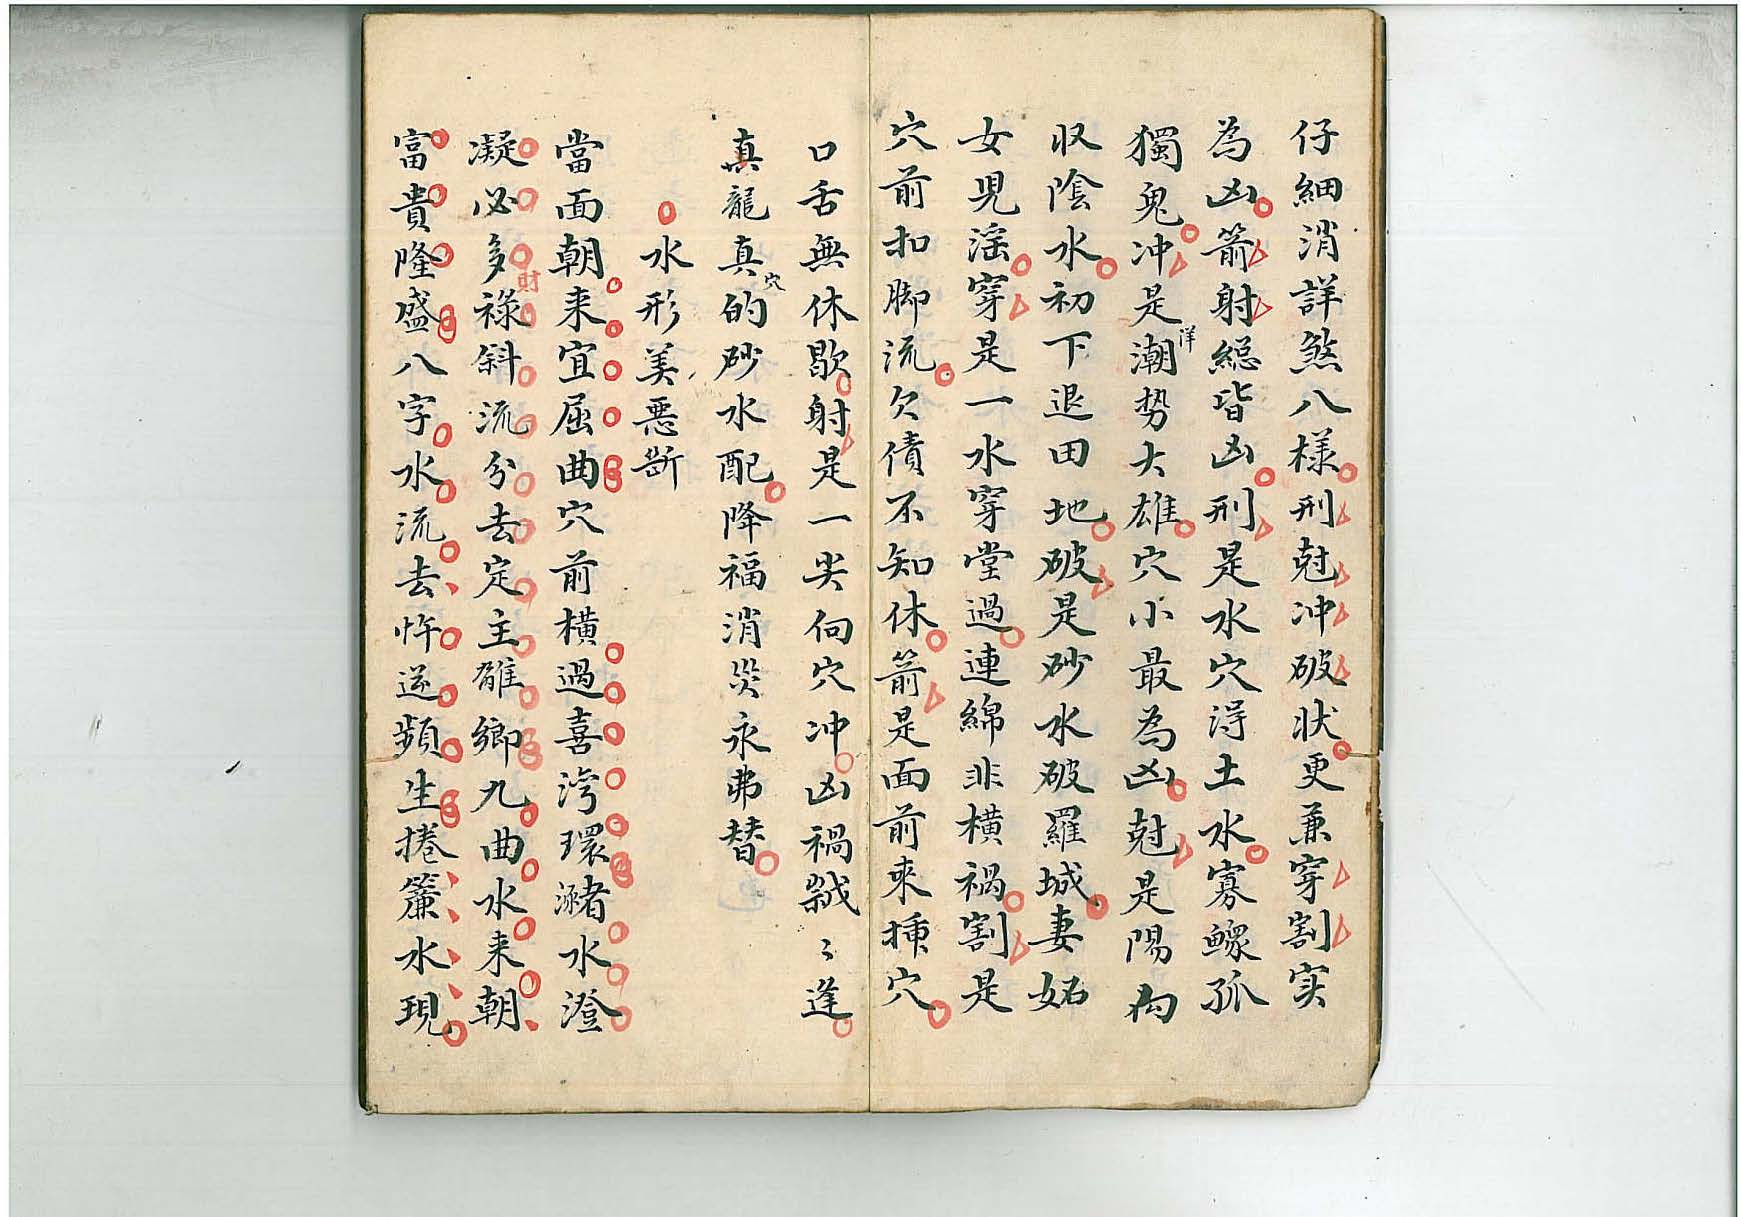 仔細消詳煞八樣刑尅冲破状更兼穿割实
為凶箭射総皆凶刑是水穴淂土水寡鰥孤
獨鬼冲是潮洋势大雄穴小最為凶尅是陽勾
収陰水初下退田地破是砂水破羅城妻妬
女児滛穿是一水穿堂過連綿非橫禍割是
穴前扣脚流欠債不知休箭是面前來揷穴
口舌無休歇射是一尖向穴冲凶禍獄〻逢
真龍真穴的砂水配降福消災永弗替
水形美惡斷
當面朝来宜屈曲穴前横過喜湾環瀦水澄
凝必多財祿斜流分去定主離鄉九曲水来朝
富貴隆盛八字水流去忤逆頻生捲簾水現